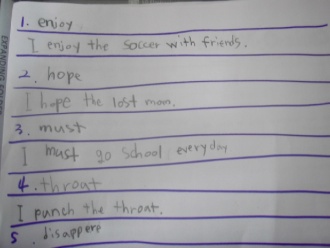 1. enjoy.
I enjoy the soccer with friends.
2. hope
I hope the lost mom.
3. must
I must go school everyday
4. throat
I punch the throat.
5. disappere